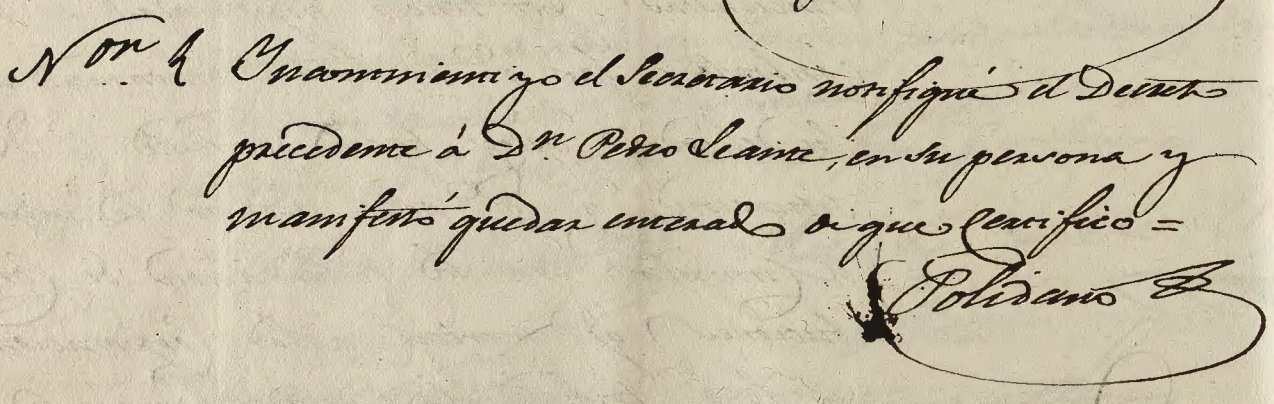 Non Incontinenti yo el Secretario notifiqué el Decreto
precedente á Dn. Pedro Leante, en su persona y
manifestó quedar enterado de que Certifico =
Polidano